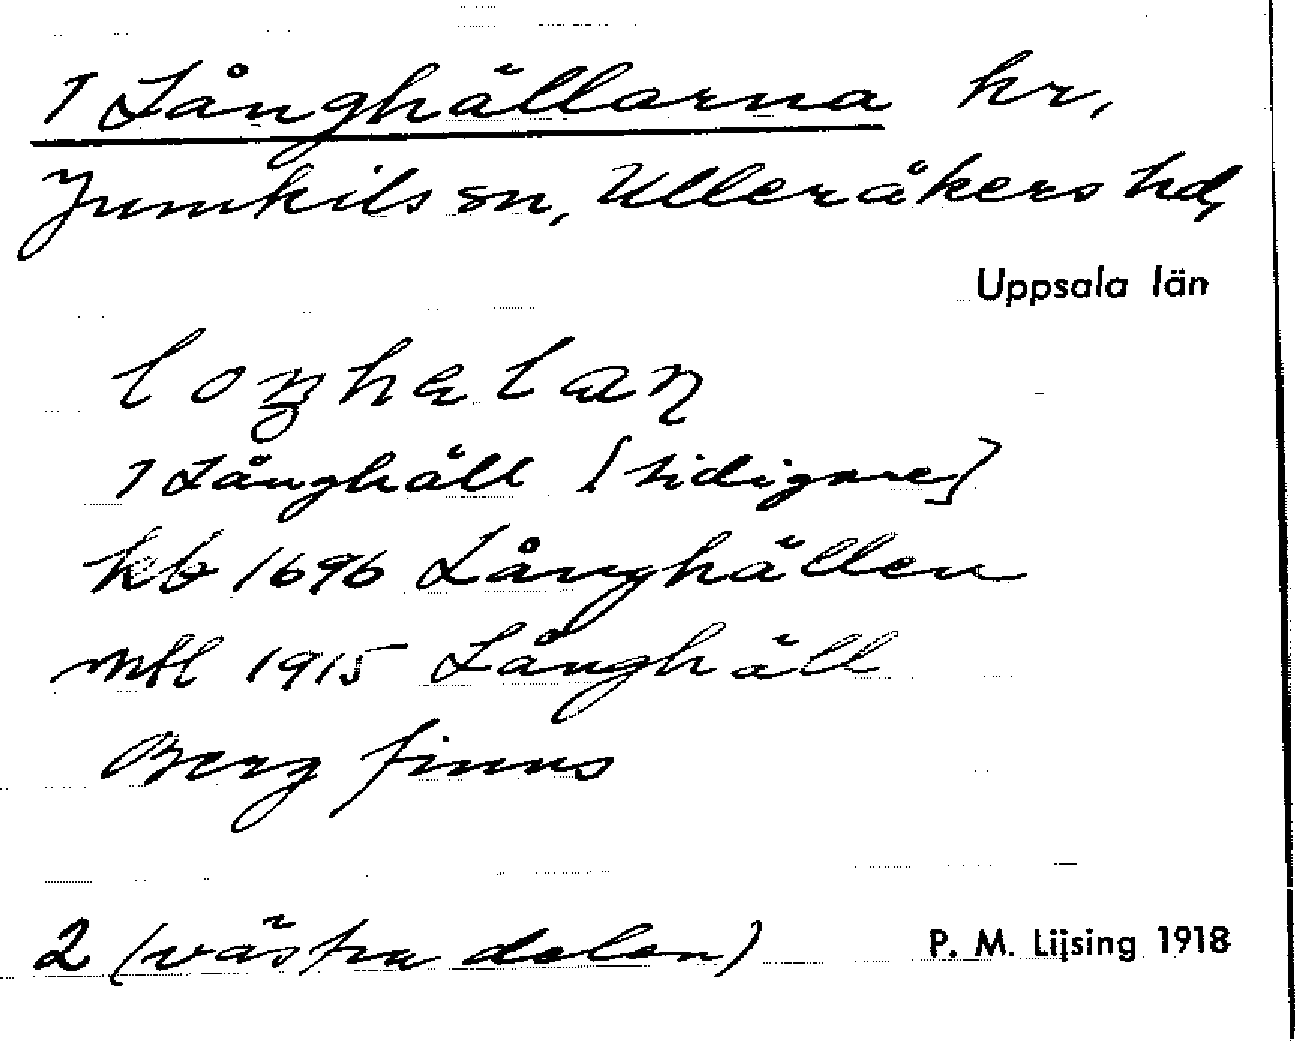 1 Långhällarna hr,
Jumkils sn, Ulleråkers hd,
Uppsala län
1 Långhäll [tidigare]
kb 1696 Långhällen
mtl 1915 Långhäll
Berg finns
2 (västra delen)
P. M. Lijsing 1918